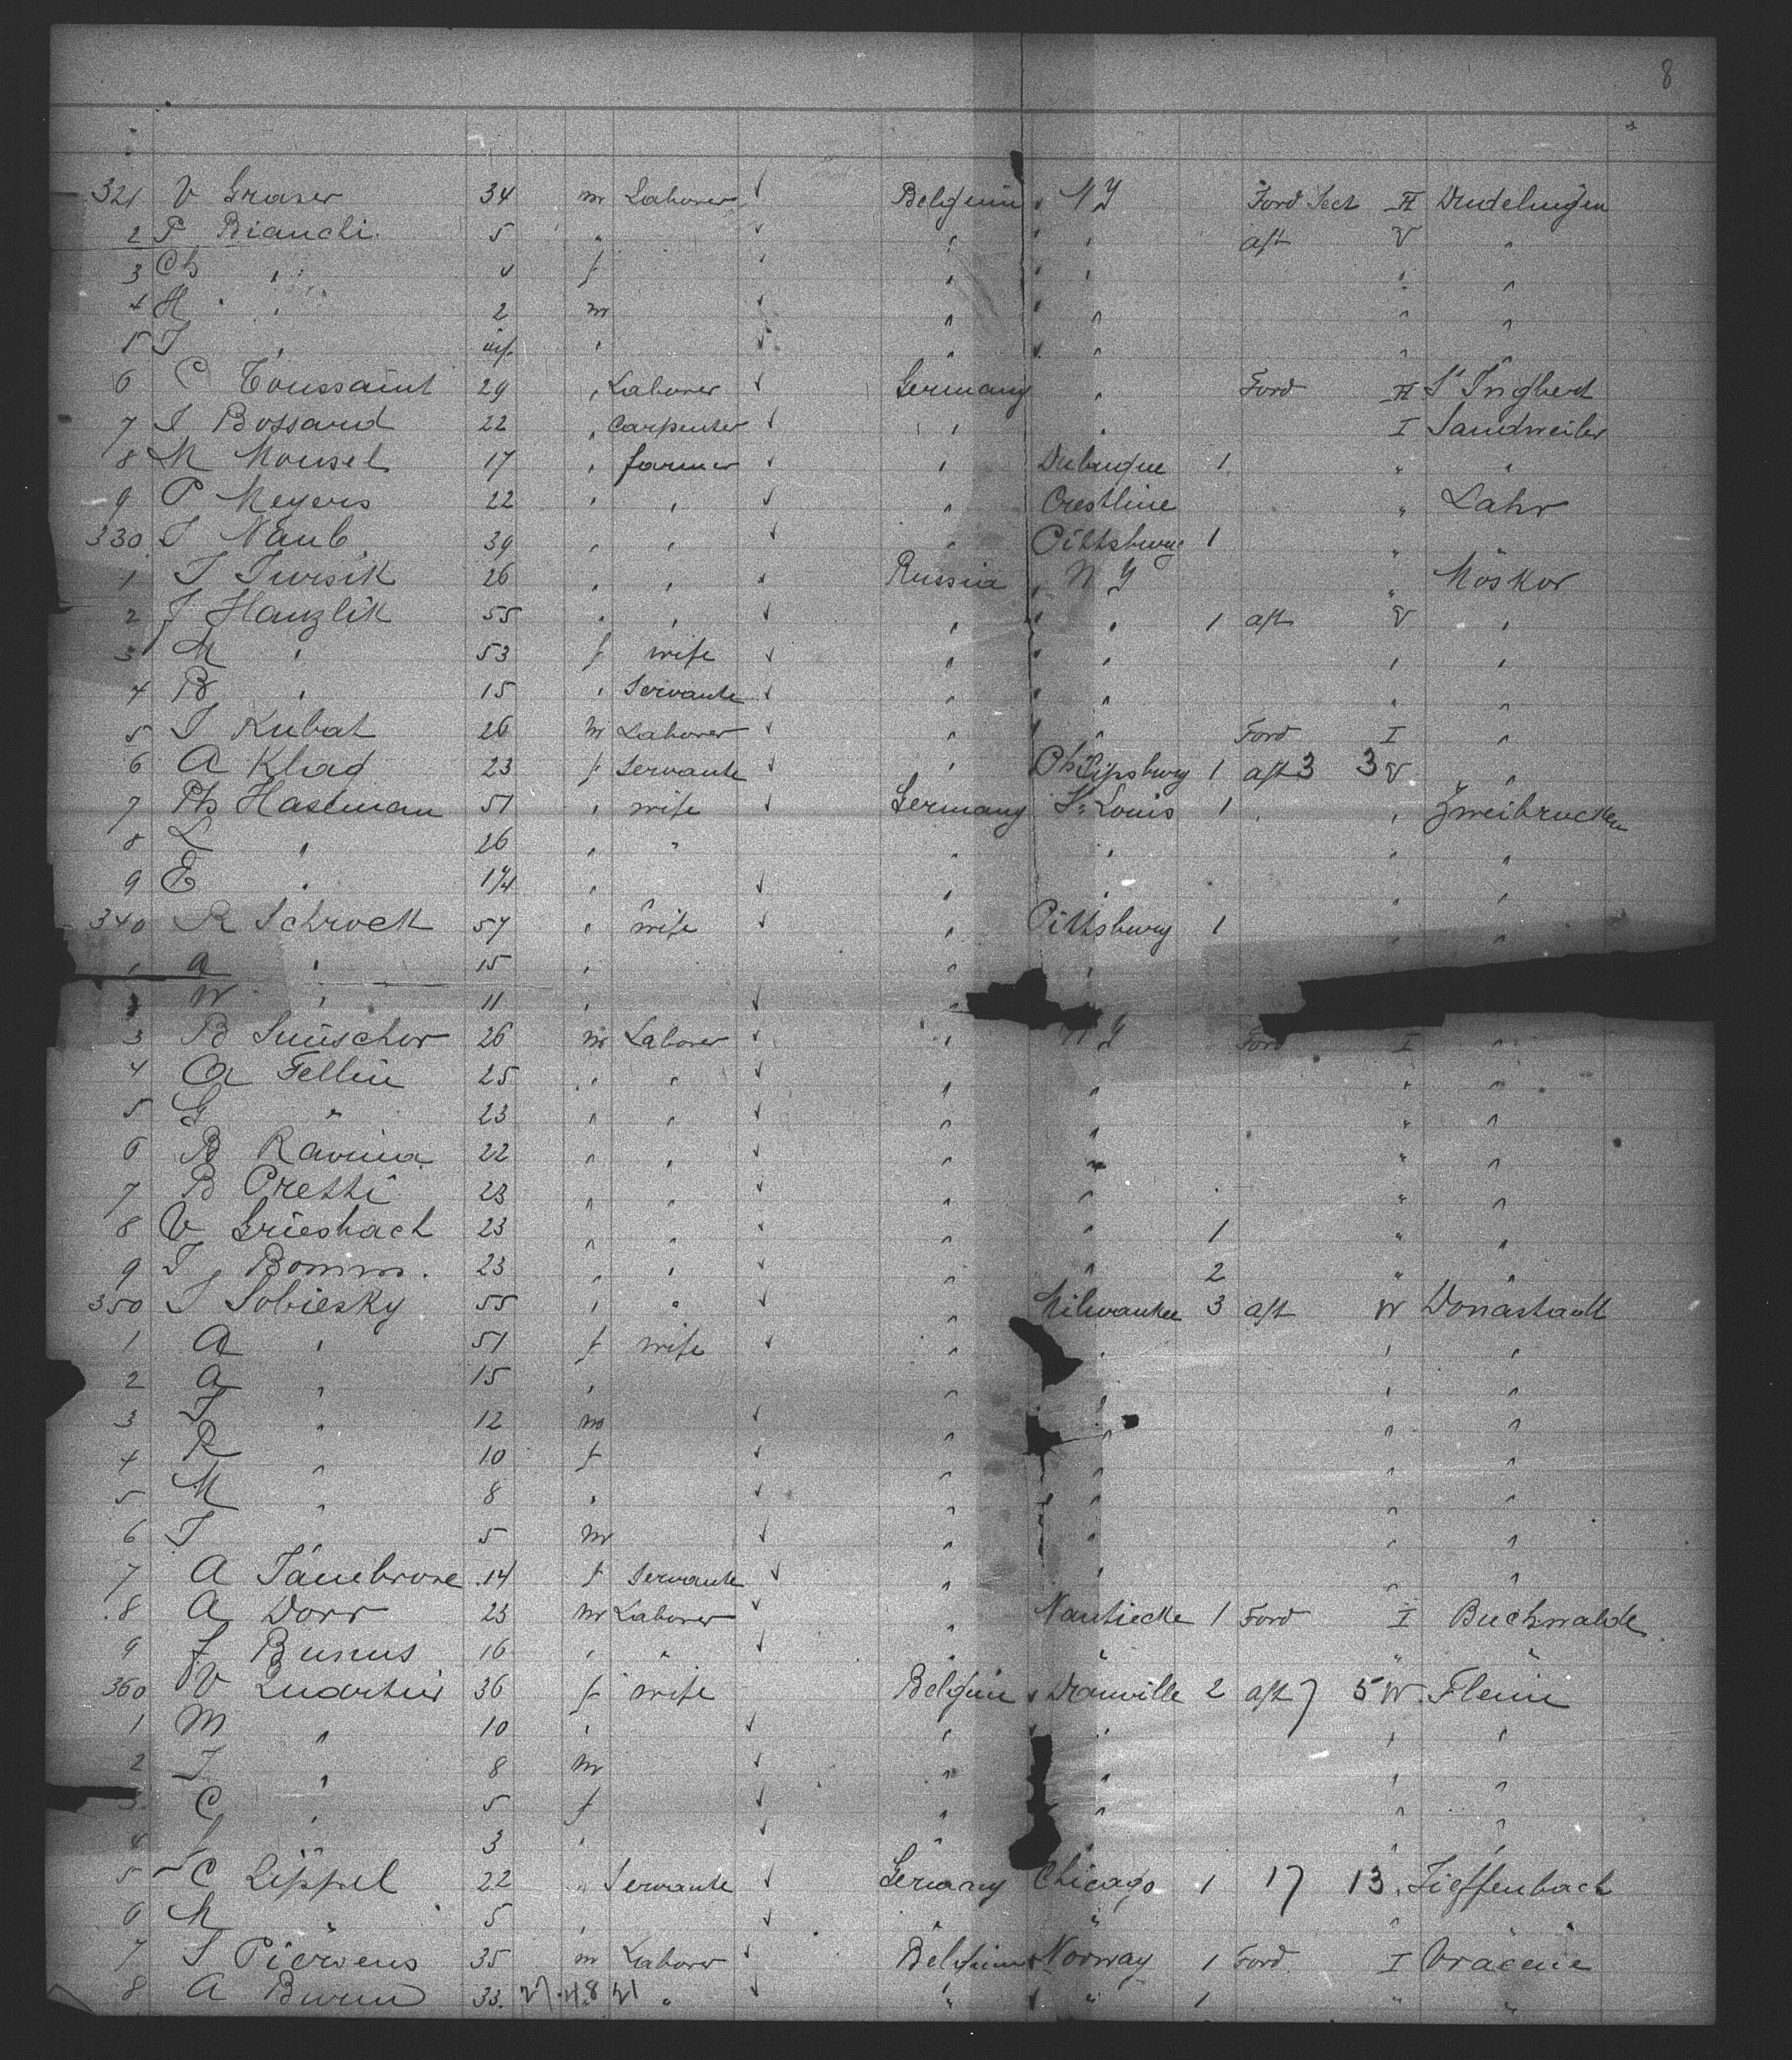 8
321 V Graser 34 m Laborer Belgium N Y Ford Sect II Dudelingen
2 P Bianchi 5 " " " aft V "
3 Ch " 4 f " " " "
4 H " 2 m " " " "
5 J " inf. " " " " "
6 C Toussaint 29 " Laborer Germany " Ford II St Ingbert
7 J Bossard 22 " Carpenter " " I Sandweiler
8 M Mousel 17 " farmer " Dubuque 1 " "
9 P Meyers 22 " " " Crestline " Lahr
330 J Naub 39 " " " Pittsburg 1 "
1 J 26 " " Russia N Y " Moskor
2 J Hanzlik 55 " " " " 1 aft V "
3 M " 53 f wife " " " "
4 B " 15 " Servante " " " "
5 J Kubat 26 m Laborer " " Ford I "
6 A 23 f Servante " Philipsburg 1 aft 3 3 V "
7 Ph Haseman 51 " wife Germany St Louis 1 " " Zweibrucken
8 L " 26 " " " " " "
9 E " 1¼ " " " " "
340 R Schrock 57 " wife " Pittsburg 1 " "
1 A " 15 " " "
W " 11 " "
3 B 26 m Laborer " N Y Ford I "
4 A Fellin 25 " " " " " "
5 G " 23 " " " " " "
6 B 22 " " " " " "
7 B Pretti 23 " " " " " "
8 V Griesbach 23 " " " " 1 " "
9 J Bomm. 23 " " " 2 " "
350 J Sobiesky 55 " " " Milwaukee 3 aft W
1 A " 51 f wife " " " "
2 A " 15 " " " " "
3 J " 12 m " " " "
4 R " 10 f " " " "
5 M " 8 " " " " "
6 J 5 m " " " "
7 A 14 f Servante " " " "
8 A Dorr 23 m Laborer " 1 Ford I Buchwalde
9 J 16 " " " " " "
360 V 36 f wife Belgium 2 aft 7 5 W
1 M " 10 " " " " "
2 J " 8 m " " " "
3 C " 5 f " " " "
4 " 3 " " " "
5 C Lippel 22 " Servante Germany Chicago 1 17 13 Tieffenbach
6 M " 5 " " " " "
7 J 35 m Laborer Belgium Norway 1 Ford I
8 A 33 " " " 1 " "